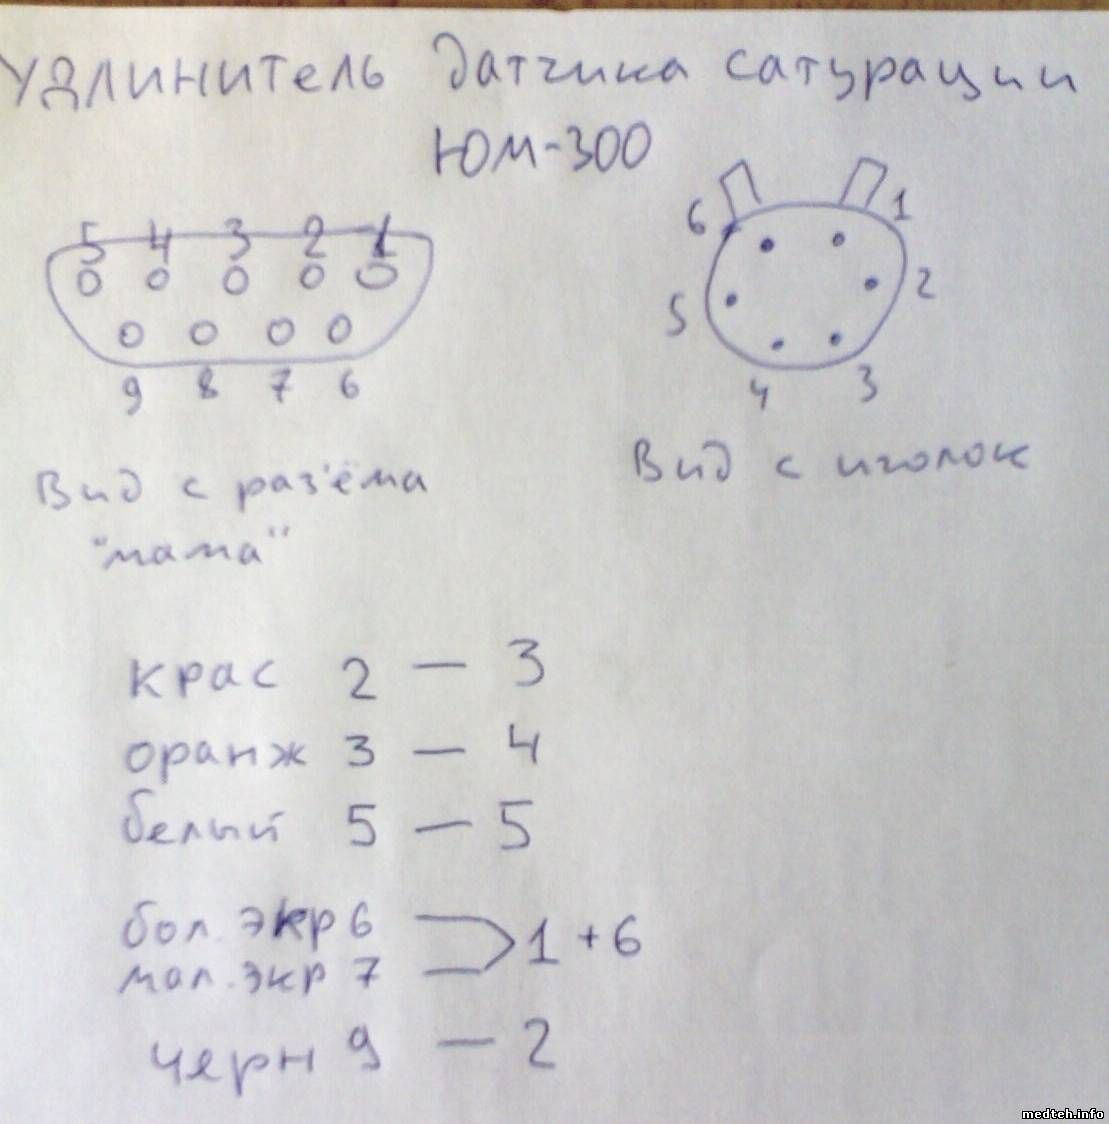 Удлинитель датчика сатурации
ЮМ-300
5 4 3 2 1
9 8 7 6
6 1
5 2
4 3
Вид с раз'ёма
"мама"
Вид с иголок
крас 2 — 3
оранж 3 — 4
белый 5 — 5
бол. экр 6
мал. экр 7
1 + 6
черн 9 — 2
medteh.info